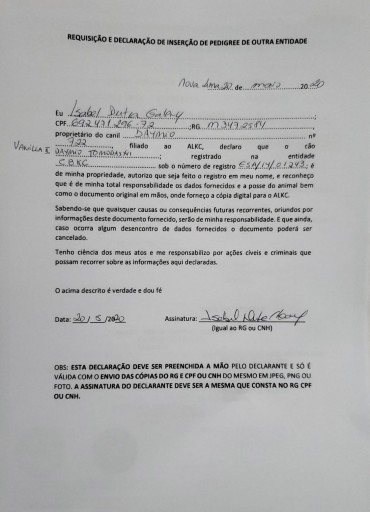 REQUISIÇÃO E DECLARAÇÃO DE INSERÇÃO DE PEDIGREE DE OUTRA ENTIDADE
Nova Lima 20 de maio 2020
Eu Isabel
CPF ;RG
proprietário do canil DAYMIO nº
722, filiado ao ALKC, declaro que o cão
VANILLA DAYMIO registrado na entidade
CBKC sob o número de registro é
de minha propriedade, autorizo que seja feito o registro em meu nome, e reconheço
que é de minha total responsabilidade os dados fornecidos e a posse do animal bem
como o documento original em mãos, onde forneço a cópia digital para o ALKC.
Sabendo-se que quaisquer causas ou consequências futuras recorrentes, oriundos por
informações deste documento fornecido, serão de minha responsabilidade. E que ainda,
caso ocorra algum desencontro de dados fornecidos o documento poderá ser
cancelado.
Tenho ciência dos meus atos e me responsabilizo por ações cíveis e criminais que
possam recorrer sobre as informações aqui declaradas.
O acima descrito é verdade e dou fé
Data: 20/5/2020 Assinatura: Isabel
(Igual ao RG ou CNH)
OBS: ESTA DECLARAÇÃO DEVE SER PREENCHIDA A MÃO PELO DECLARANTE E SÓ É
VÁLIDA COM O ENVIO DAS CÓPIAS DO RG E CPF OU CNH DO MESMO EM JPEG, PNG OU
FOTO. A ASSINATURA DO DECLARANTE DEVE SER A MESMA QUE CONSTA NO RG CPF
OU CNH.